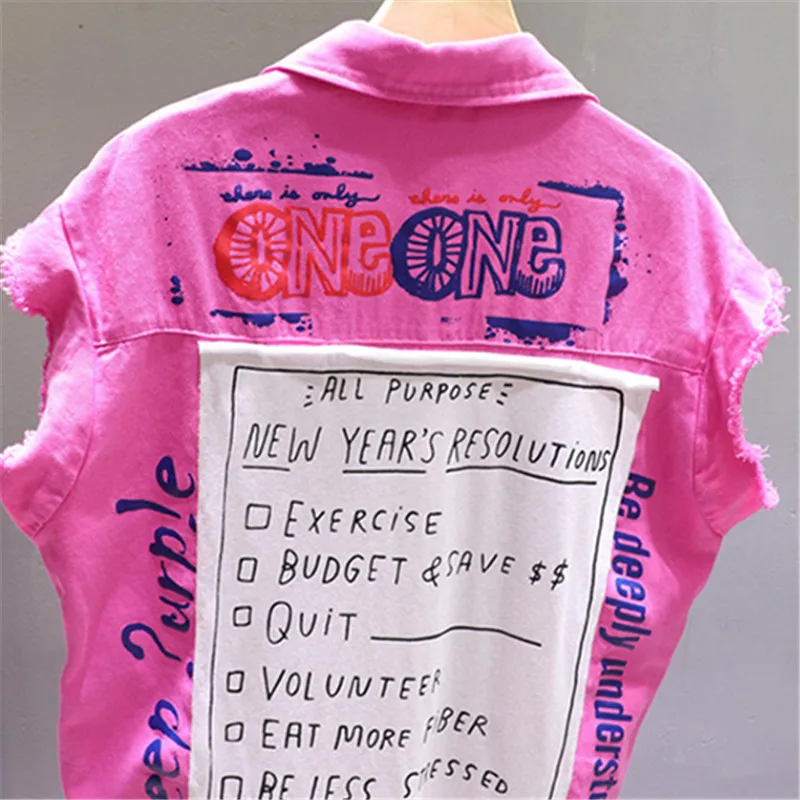 there is only there is only
ONE ONE
ALL PURPOSE
NEW YEAR'S RESOLUTIONS
EXERCISE
BUDGET & SAVE $$
QUIT
VOLUNTEER
EAT MORE FIBER
BE LESS STRESSED
Purple
Be deeply